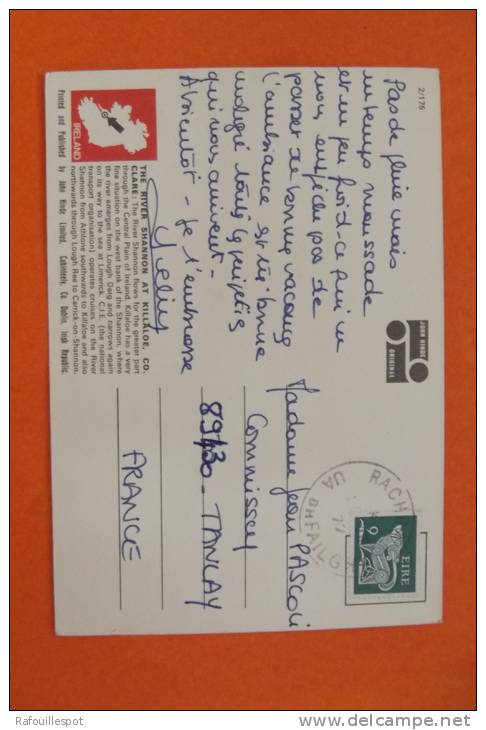 2/176
Pas de pluie mais
un temps maussade
et un peu froid - ce qui ne
nous empêche pas de
passer de bonnes vacances
l'ambiance est très bonne
malgré tous les
qui nous arrivent -
A bientôt - Je t'embrasse
JOHN HINDE
ORIGINAL
RACH
UA
BHFAILG
77
EIRE
9
Madame Jean PASCOLI
Commissey
89430 - TANLAY
FRANCE
IRELAND
THE RIVER SHANNON AT KILLALOE, CO.
CLARE: The River Shannon flows for the greater part
through the Central Plain of Ireland. Killaloe has a very
fine situation on the west bank of the Shannon, where
the river emerges from Lough Derg and narrows again
on its way to the sea at Limerick. C.I.E. (the national
transport organisation) operates cruises on the River
Shannon from Athlone southwards to Killaloe and also
northwards through Lough Ree to Carrick-on-Shannon.
Printed and Published by John Hinde Limited, Cabinteely, Co. Dublin, Irish Republic.
Rafouillespot
www.delcampe.net